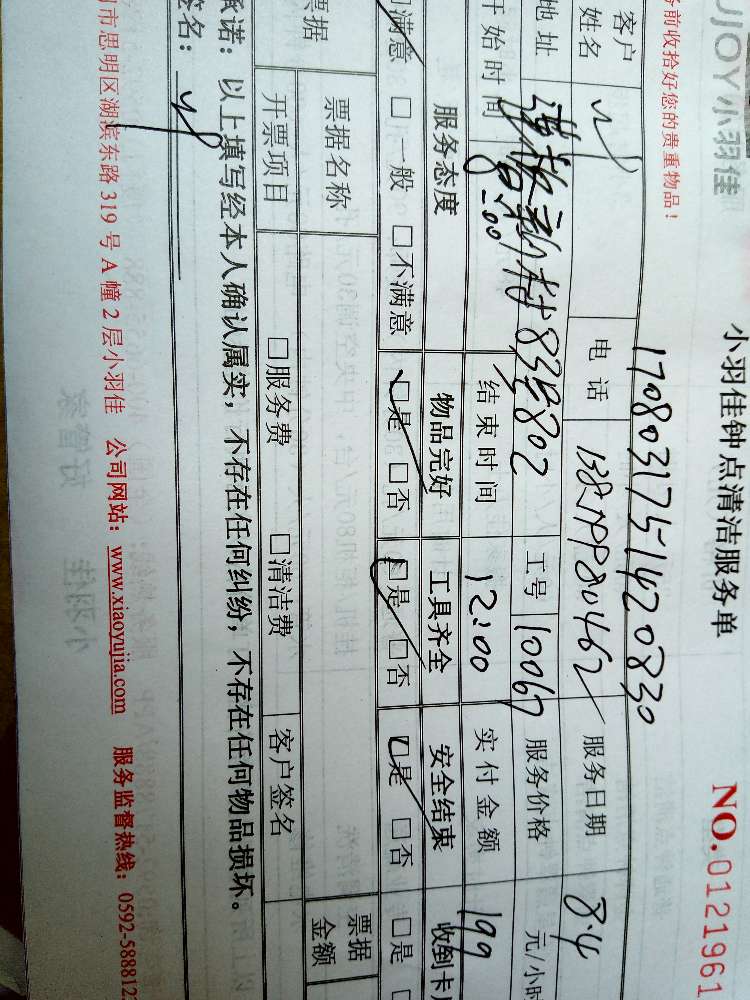 UJOY小羽佳
小羽佳钟点清洁服务单
NO.0121961
前收拾好您的贵重物品！
1708031751420830
客户姓名
电话
服务日期 8.4
地址
835802
工号 10067
服务价格 元/小时
开始时间 8:00
结束时间 12:00
实付金额 199
服务态度 物品完好 工具齐全 安全结束 收到卡
满意 □一般 □不满意 □是 □否 □是 □否 □是 □否 □是
票据 票据名称 票据金额
开票项目 □服务费 □清洁费 客户签名
承诺：以上填写经本人确认属实，不存在任何纠纷，不存在任何物品损坏。
签名：
市思明区湖滨东路 319 号 A 幢 2 层小羽佳 公司网站：www.xiaoyujia.com 服务监督热线：0592-588812